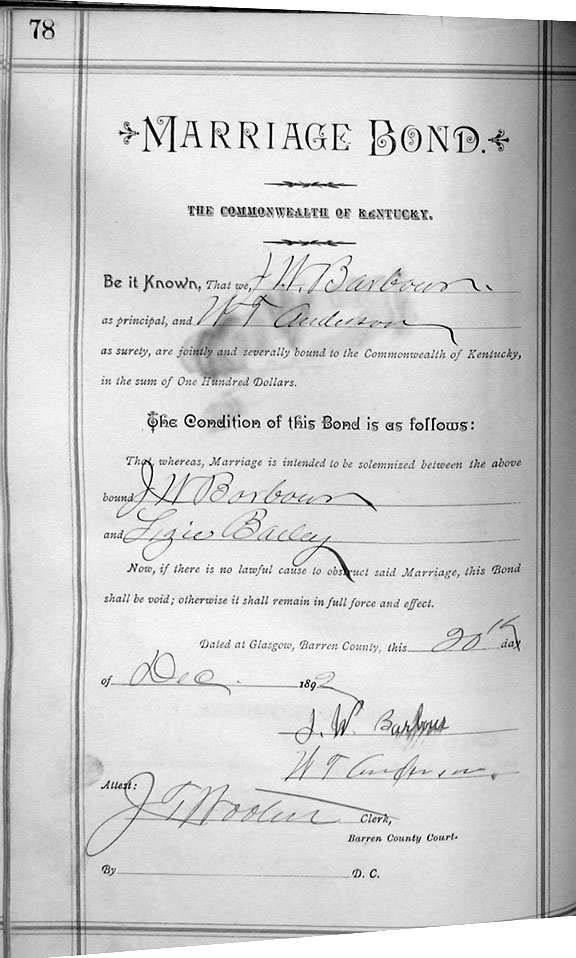 78
MARRIAGE BOND.
THE COMMONWEALTH OF KENTUCKY.
Be it Known, That we, J. W. Barbour.
as principal, and W T Anderson
as surety, are jointly and severally bound to the Commonwealth of Kentucky,
in the sum of One Hundred Dollars.
The Condition of this Bond is as follows:
That, whereas, Marriage is intended to be solemnized between the above
bound J W Barbour
and Lizie Bailey
Now, if there is no lawful cause to obstruct said Marriage, this Bond
shall be void; otherwise it shall remain in full force and effect.
Dated at Glasgow, Barren County, this 20th day
of Dec. 1892
J. W. Barbour
W T Anderson.
Attest:
J T Clerk,
Barren County Court.
By D. C.